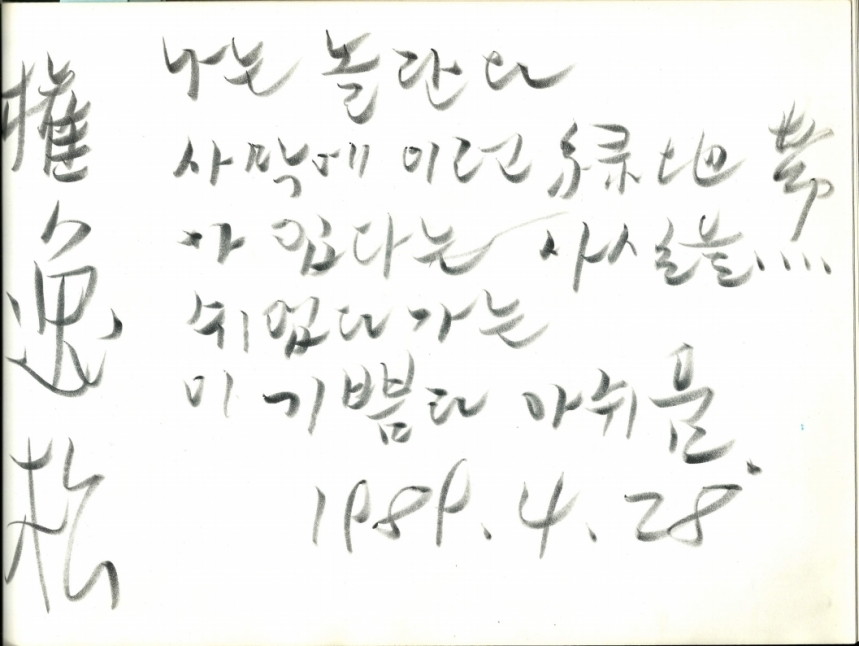 나는 놀란다
사막에 이런 綠地帶
가 있다는 사실을....
쉬었다가는
이 기쁨과 아쉬움.
1989. 4. 28
權逸松